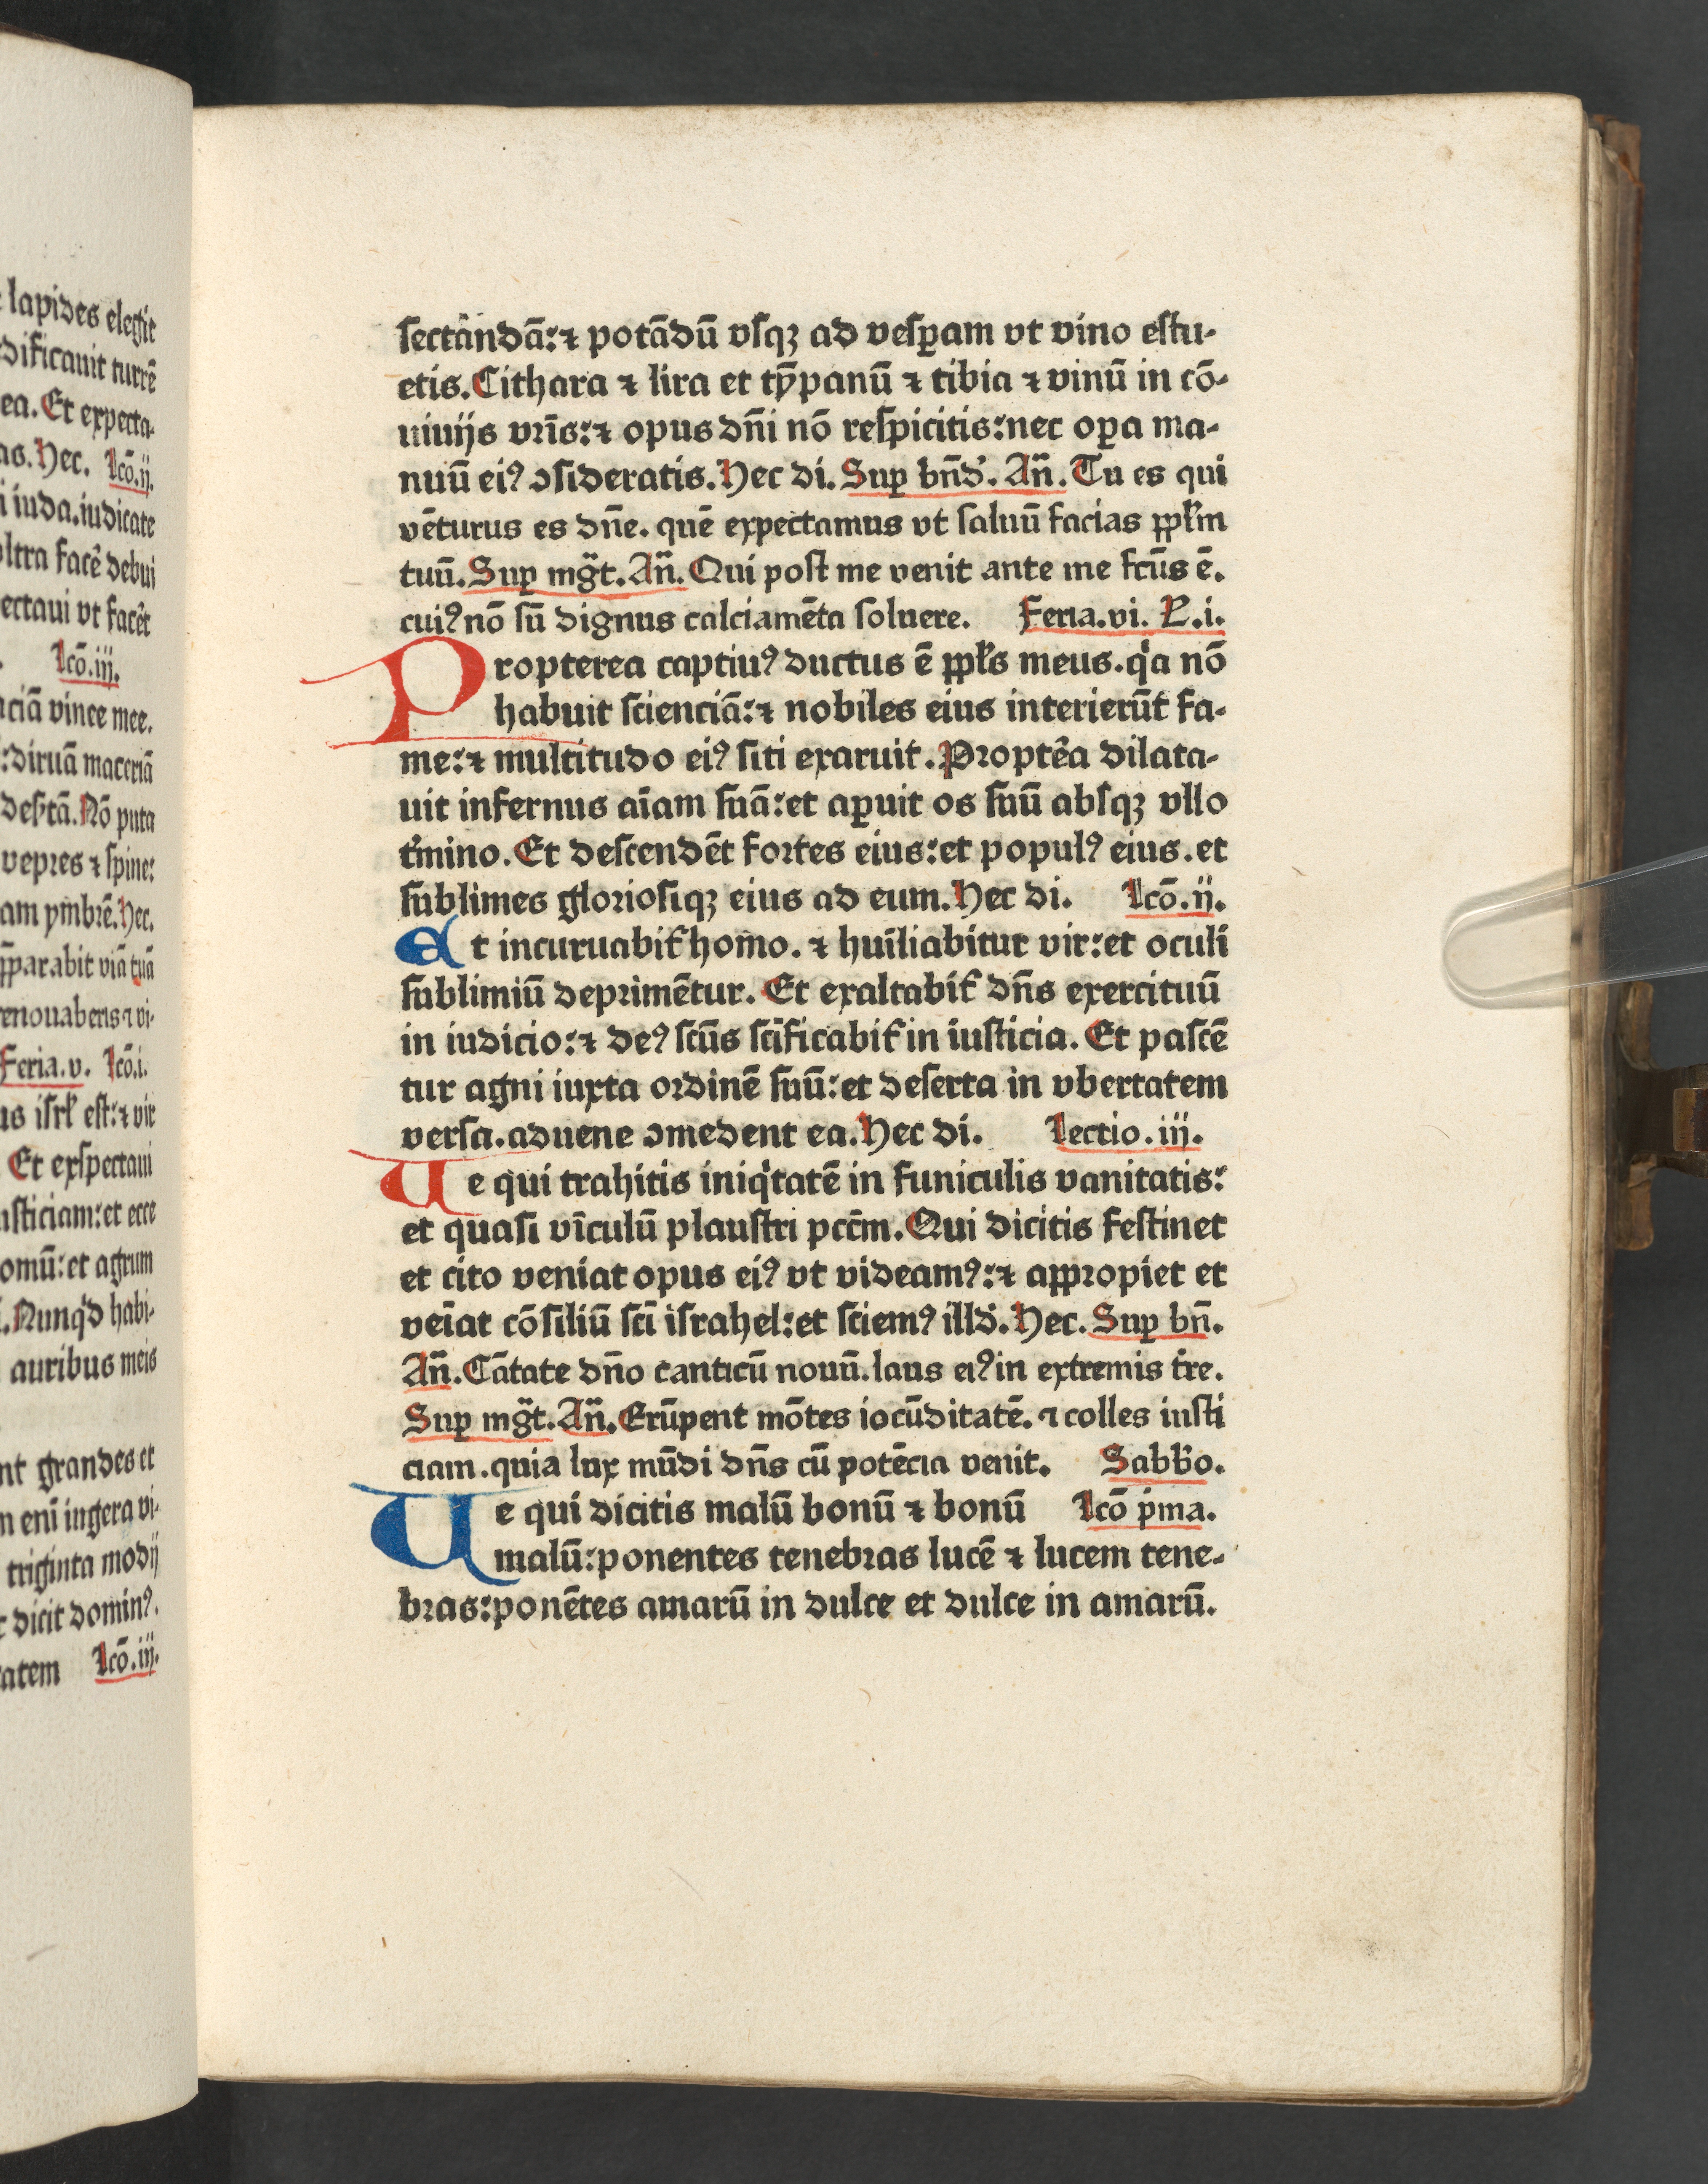 lapides elegit
dificauit turrē
ea. Et expecta-
as. Hec. Lcō. ij.
i iuda. iudicate
ltra facē debui
ectaui vt facēt
Lcō. iij.
aciā vinee mee.
: diruā maceriā
desertā. Nō puta
vepres ⁊ spine:
am ymbrē. Hec.
pparabit viā tuā
renouaberis ⁊ vi-
Feria. v. Lcō. i.
us isrl̄ est: ⁊ vir
Et exspectaui
usticiam: et ecce
omū: et agrum
. Nunqd habi-
auribus meis
nt grandes et
m eni iugera vi-
triginta modij
dicit dominꝰ.
tatem Lcō. iij.
sectandā: ⁊ potādū vsqꝫ ad vesꝑam vt vino estu-
etis. Cithara ⁊ lira et tȳpanū ⁊ tibia ⁊ vinū in cō-
uiuijs vr̄is: ⁊ opus dn̄i nō respicitis: nec oꝑa ma-
nuū eiꝰ ↄsideratis. Hec di. Suꝑ bn̄d'. An̄. Tu es qui
vēturus es dn̄e. quē expectamus vt saluū facias ppl̄m
tuū. Suꝑ mg̃t. An̄. Qui post me venit ante me fcūs ē.
cuiꝰ nō sū dignus calciamēta soluere. Feria. vi. L. i.
Propterea captiuꝰ ductus ē ppl̄s meus. qͥa nō
habuit scienciā: ⁊ nobiles eius interierūt fa-
me: ⁊ multitudo eiꝰ siti exaruit. Proptēa dilata-
uit infernus aīam suā: et aꝑuit os suū absqꝫ vllo
tm̓ino. Et descendēt fortes eius: et populꝰ eius. et
sublimes gloriosiqꝫ eius ad eum. Hec di. Lcō. ij.
Et incuruabit̉ homo. ⁊ hui̅liabitur vir: et oculi
sublimiū deprimētur. Et exaltabit̉ dn̄s exercituū
in iudicio: ⁊ deꝰ scūs scīficabit̉ in iusticia. Et pascē
tur agni iuxta ordinē suū: et deserta in vbertatem
versa. aduene ↄmedent ea. Hec di. Lectio. iij.
Ue qui trahitis iniqͥtatē in funiculis vanitatis:
et quasi vīculū plaustri pccm̄. Qui dicitis festinet
et cito veniat opus eiꝰ vt videamꝰ: ⁊ appropiet et
veīat cōsiliū scī israhel: et sciemꝰ illd'. Hec. Suꝑ bn̄.
An̄. Cātate dn̄o canticū nouū. laus eiꝰ in extremis tr̄e.
Suꝑ mg̃t. An̄. Erūpent mōtes iocūditatē. ⁊ colles iusti
ciam. quia lux mūdi dn̄s cū potēcia venit. Sabb'o.
Ue qui dicitis malū bonū ⁊ bonū Lcō pͥma.
malū: ponentes tenebras lucē ⁊ lucem tene-
bras: ponētes amarū in dulce et dulce in amarū.